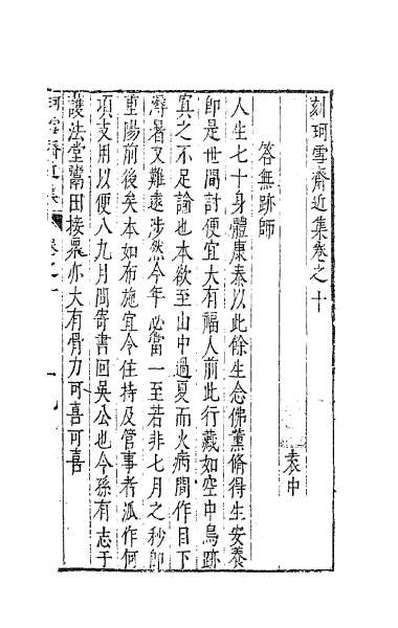 刻珂雪齋近集卷之十
袁中
答無跡師
人生七十身體康泰以此餘生念佛薰脩得生安養
即是世間討便宜大有福人前此行藏如空中鳥跡
寘之不足論也本欲至山中過夏而火病間作目下
溽暑又難遠涉然今年必當一至若非七月之秒即
重陽前後矣本如布施宜令住持及管事者派作何
項支用以便八九月間寄書回吳公也今孫有志于
護法堂鬻田接衆亦大有骨力可喜可喜
珂雪齋近集 卷之十